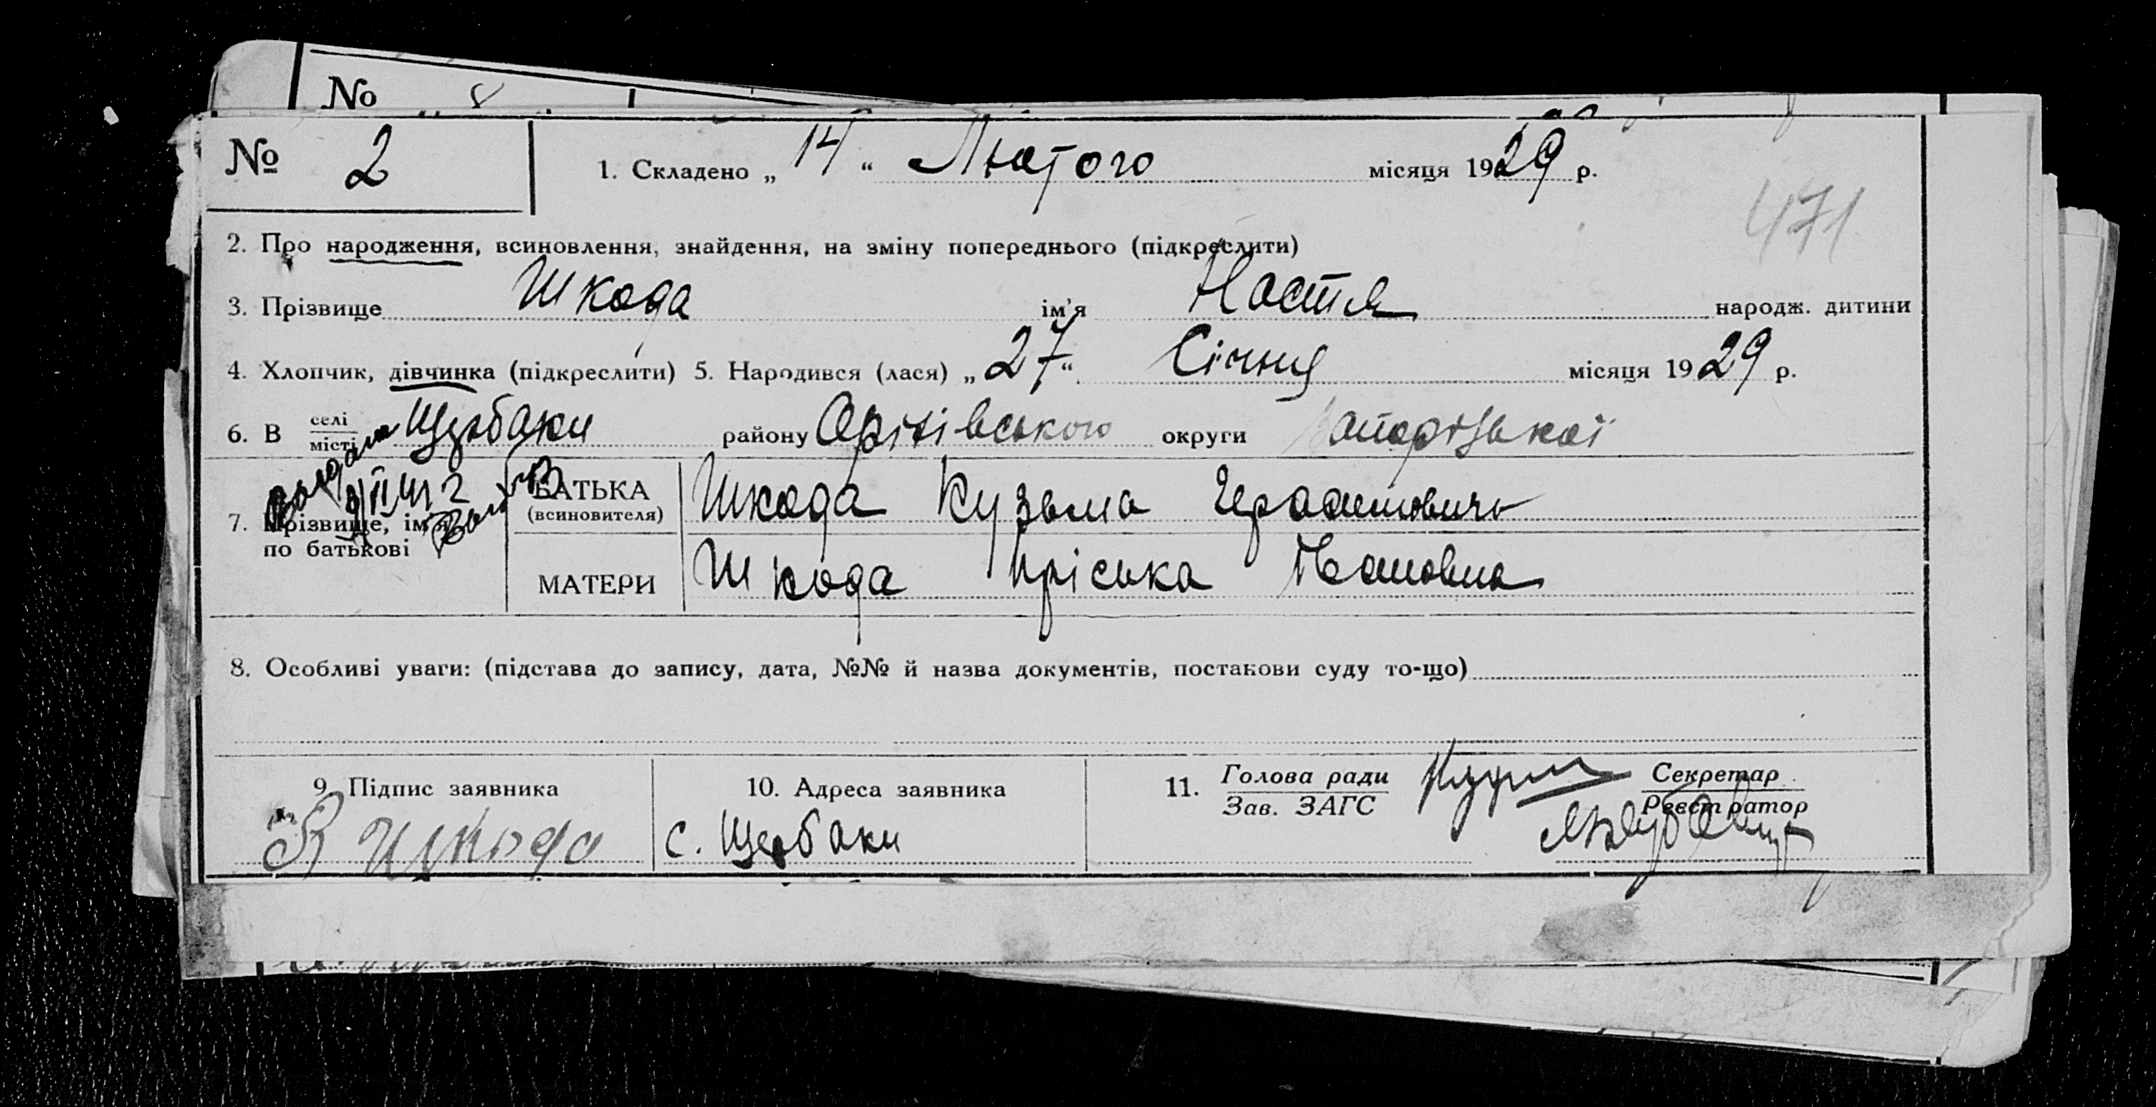 № 8
№ 2
1. Складено „ 14 “ Лютого місяця 1929 р.
471
2. Про народження, всиновлення, знайдення, на зміну попереднього (підкреслити)
3. Прізвище Шкода ім'я Настя народж. дитини
4. Хлопчик, дівчинка (підкреслити) 5. Народився (лася) „ 27 “ Січня місяця 1929 р.
6. В селі місті Щербаки району Оріхівського округи Запорізької
7. Прізвище, ім'я по батькові
БАТЬКА (всиновителя) Шкода Кузьма Герасимович
МАТЕРИ Шкода Пріська Івановна
8. Особливі уваги: (підстава до запису, дата, №№ й назва документів, постанови суду то-що)
9. Підпис заявника
Шкода
10. Адреса заявника
с. Щербаки
11. Голова ради
Зав. ЗАГС
Секретар
Реєстратор